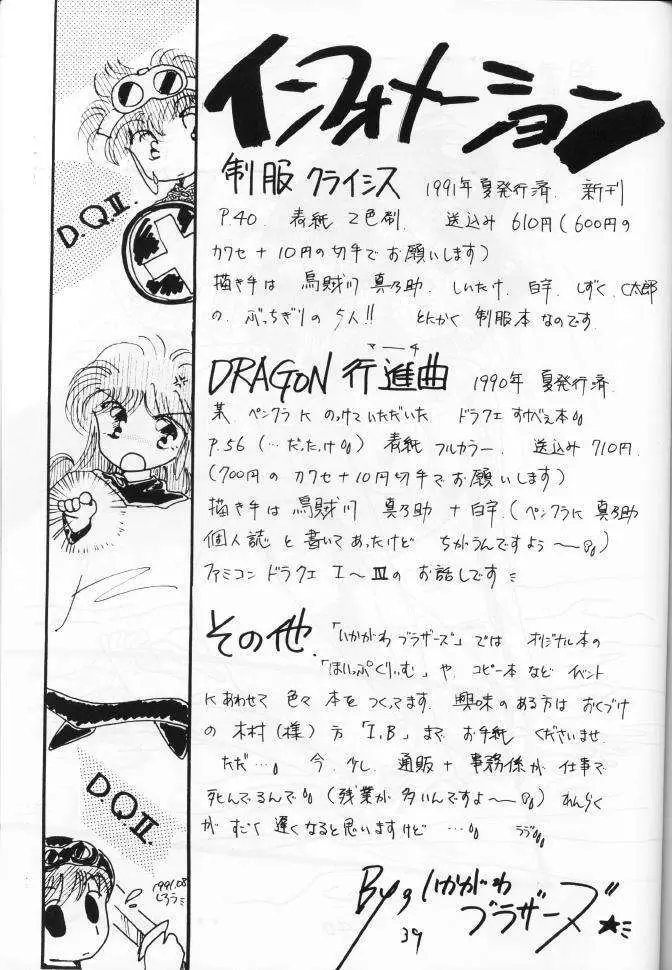 インフォメーション
制服 クライシス 1991年夏発行済. 新刊
P.40. 表紙 2色刷. 送込み 610円(600円の
カワセ + 10円の切手で お願いします)
描き手は 烏賊川 真乃助. しいたけ. 白宇. しずく. C太郎
の. ぶっちぎりの 5人!! とにかく 制服本なのです.
マーチ
DRAGON 行進曲 1990年 夏発行済.
某. ペンクラに のっけていただいた ドラクエ すけべえ本
P.56 (…だったっけ) 表紙 フルカラー. 送込み 710円.
(700円の カワセ + 10円切手で お願いします)
描き手は 烏賊川 真乃助 + 白宇. (ペンクラに 真乃助
個人誌 と 書いてあったけど ちがうんですよう〜)
ファミコン ドラクエ I〜III の お話しです
その他. 「いかがわ ブラザーズ」では オリジナル本の
「ほいっぷくりぃむ」や. コピー本など イベント
にあわせて 色々 本を つくってます. 興味のある方は おくづけ
の 木村(様)方「I,B」まで お手紙 くださいませ.
ただ…。 今. 少し. 通販 + 事務係が 仕事で
死んでるんで (残業が 多いんですよ〜) れんらく
が すごく 遅くなると思いますけど …。
By いかがわ
ブラザーズ
39
D.Q.II.
D.Q.II.
1991.08
しろう